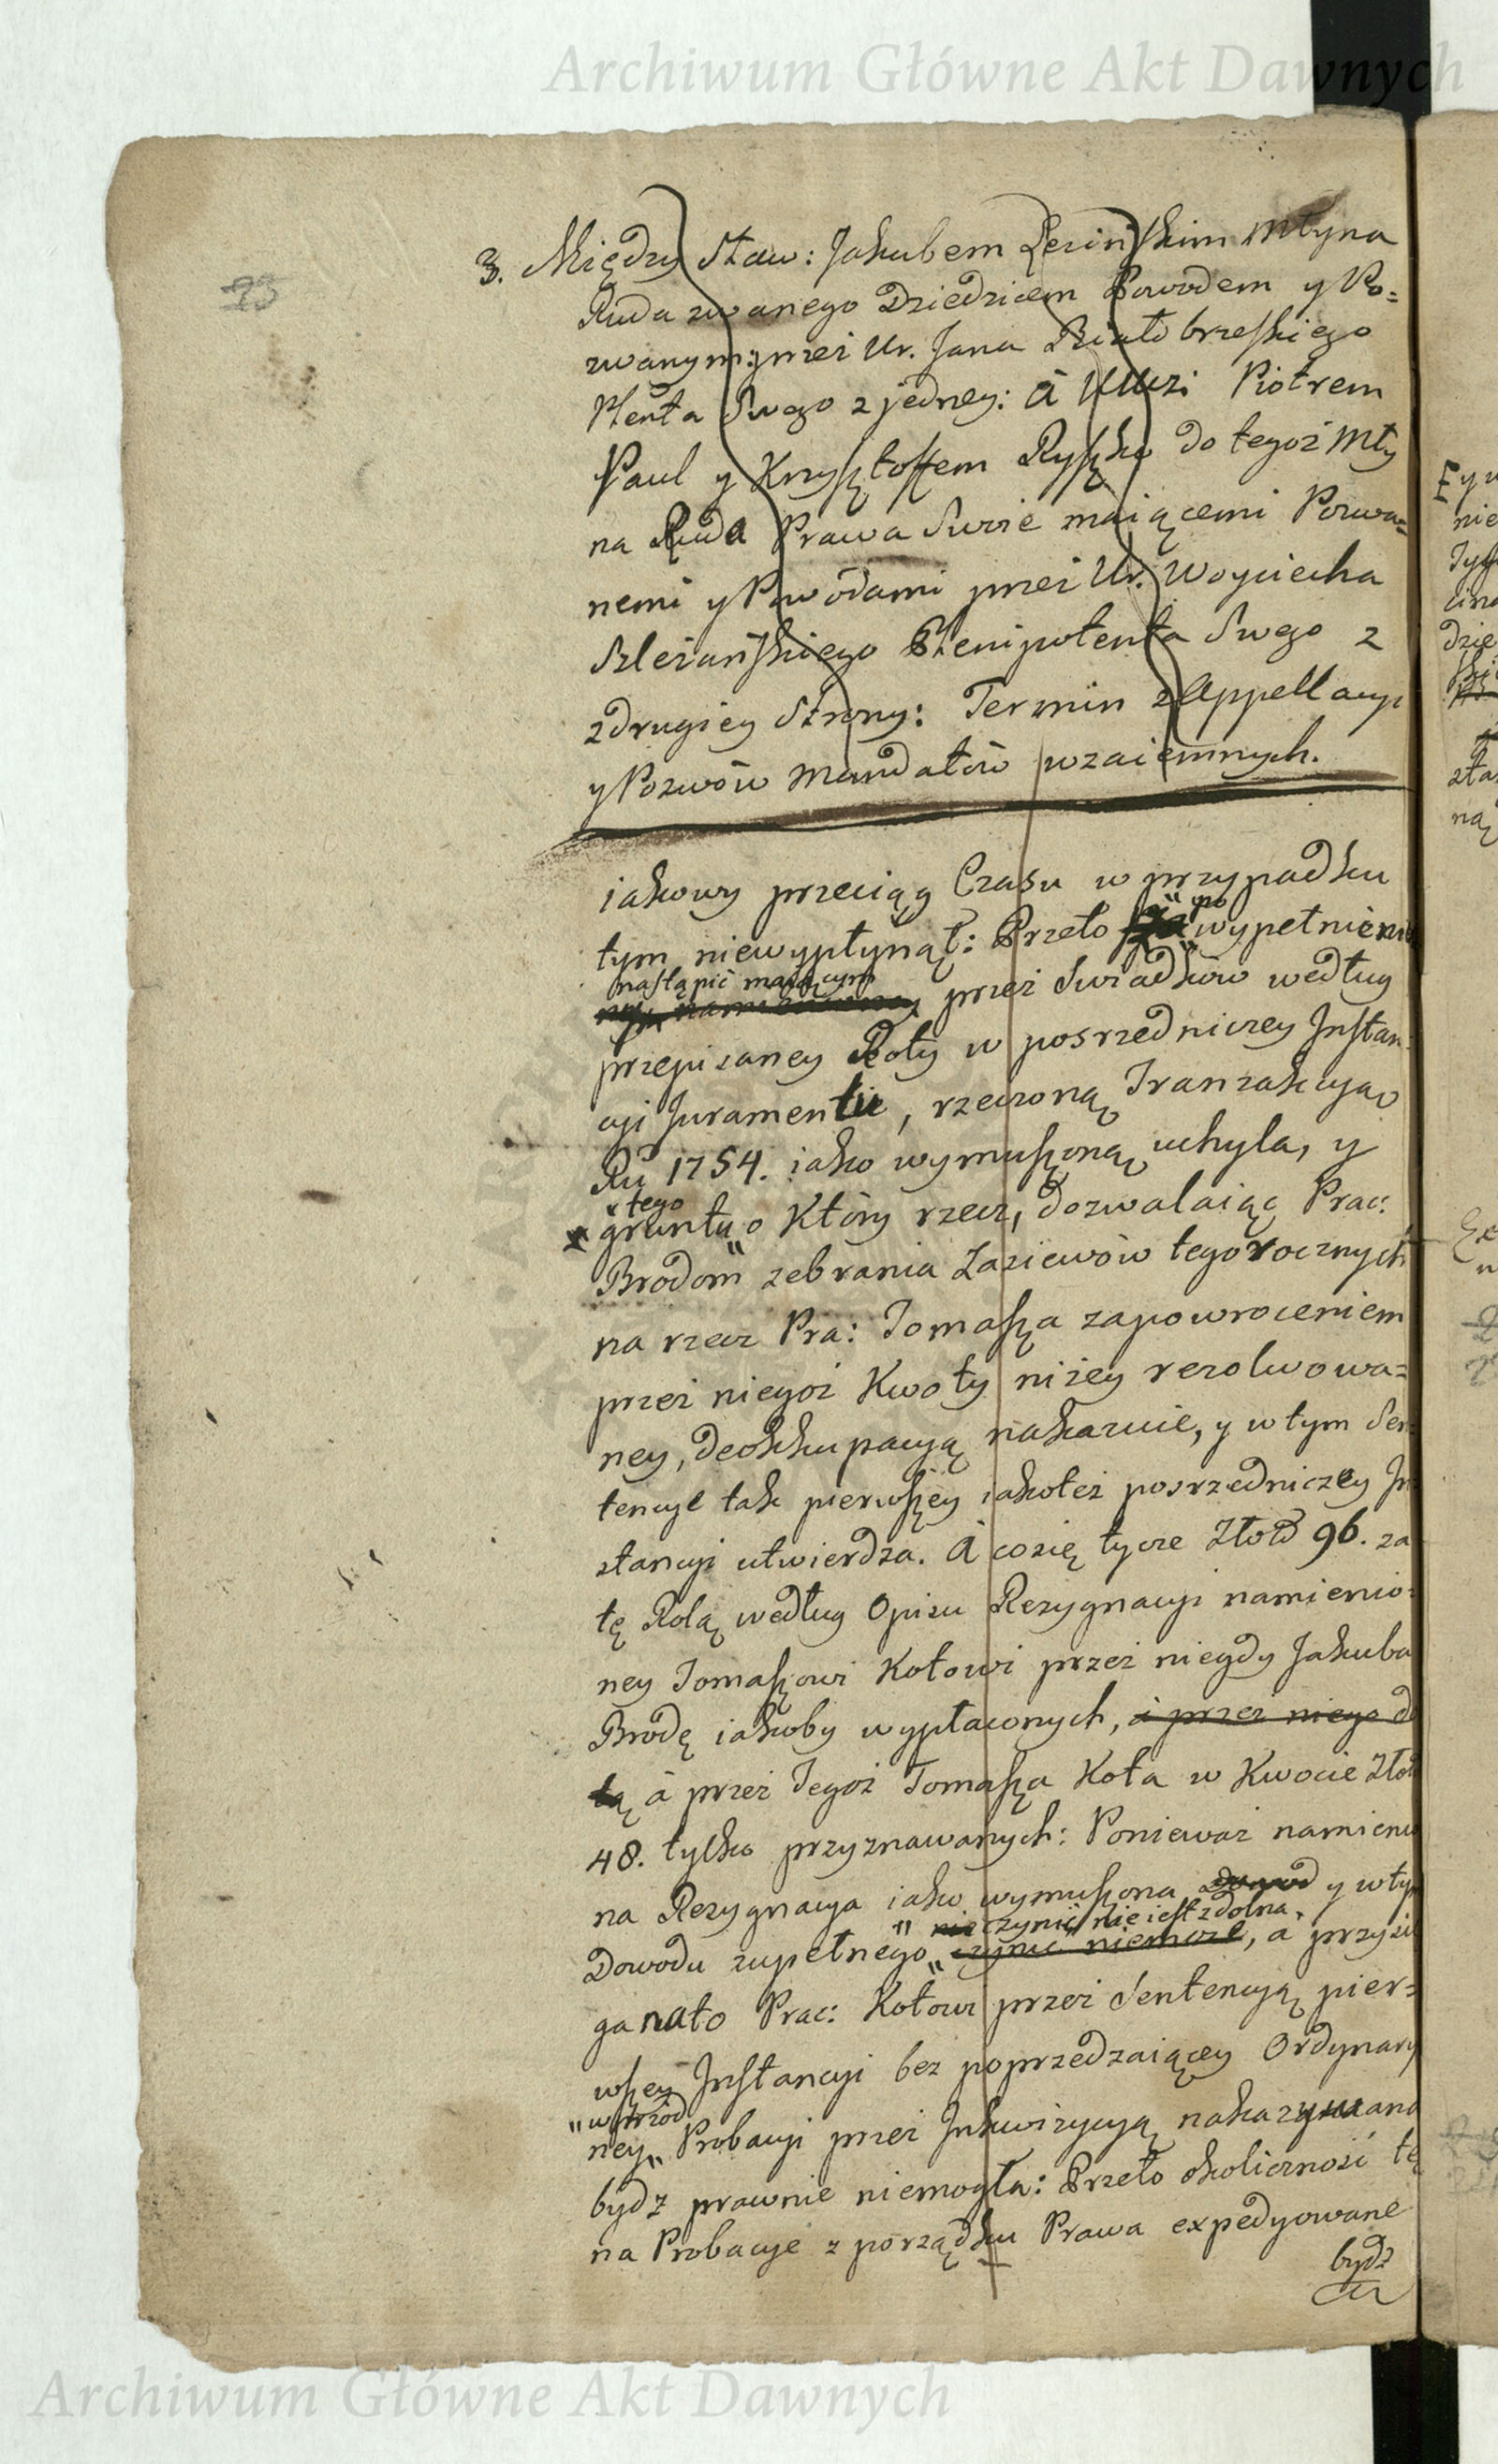 Archiwum Główne Akt Dawnych
93
3. Między Sław: Jakubem Lesińskim Młyna
Ruda zwanego Dziedzicem Powodem y Po=
zwanym przez Ur. Jana Białobrzeskiego
Plenta Swego z jedney: á Piotrem
Paul y Krzysztoffem Ryszko do tegoż Mły
na Ruda Prawa Swoie maiącemi Pozwa=
nemi y Powodami przez Ur. Woyciecha
Szleżańskiego Plenipotenta Swego z
z drugiey Strony: Termin z Appellacyi
y Pozwów Mandatów wzaiemnych.
iakowy przeciąg Czasu w przypadku
tym niewypłynął: Przeto po wypełnieniu
nastąpić maiącym
przez Swiadków według
przepisaney Roty w posrzedniczey Instan=
cyi Juramentu, rzeczoną Tranzakcyą
Ru 1754. iako wymuszoną uchyla, y
tego
gruntu o Który rzecz, dozwalaiąc Prac:
Brodom zebrania Zasiewów tegorocznych
na rzecz Pra: Tomasza zapowroceniem
przez niegoż Kwoty niżey rezolwowa=
ney, deokkupacyą nakazuie, y w tym Sen=
tencye tak pierwszey iakoteż posrzedniczey In
stancyi utwierdza. A cosię tycze Złotd 96. za
tę Rolą według Opisu Rezygnacyi namienio=
ney Tomaszowi Kotowi przez niegdy Jakuba
Brodę iakoby wypłaconych, á przez niego d
tą á przez Tegoż Tomasza Kota w Kwocie Złot
48. tylko przyznawanych: Ponieważ namienio
na Rezygnacya iako wymuszona Dowod y w tym
nie czynić nie iest zdolna
Dowodu zupełnego czynic niemoże, á przysię
ga nato Prac: Kotowi przez Sentencyą pier=
wszey Instancyi bez poprzedzaiącey Ordynary
wprzód
ney Probacyi przez Inkwizycyą nakazywana
bydz prawnie niemogła: Przeto okoliczność tę
na Probacye z porządku Prawa expedyowane
bydz
Archiwum Główne Akt Dawnych